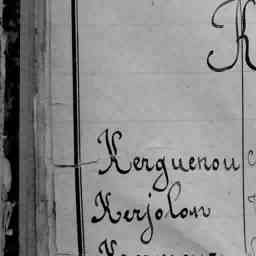 K
Kerguenou
Kerjolon